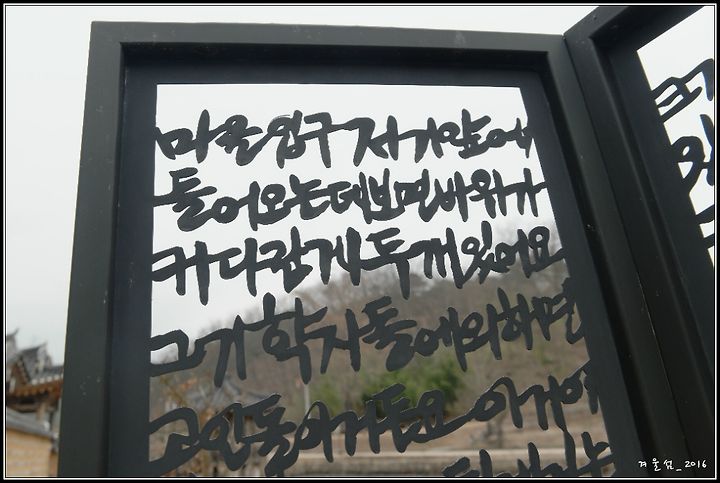 마을입구 저기 앞에
들어오는데 보면 바위가
커다랗게 두개 있어요
그기 학자들에 의하면
고인돌이거든요 이거이
겨울섬_2016